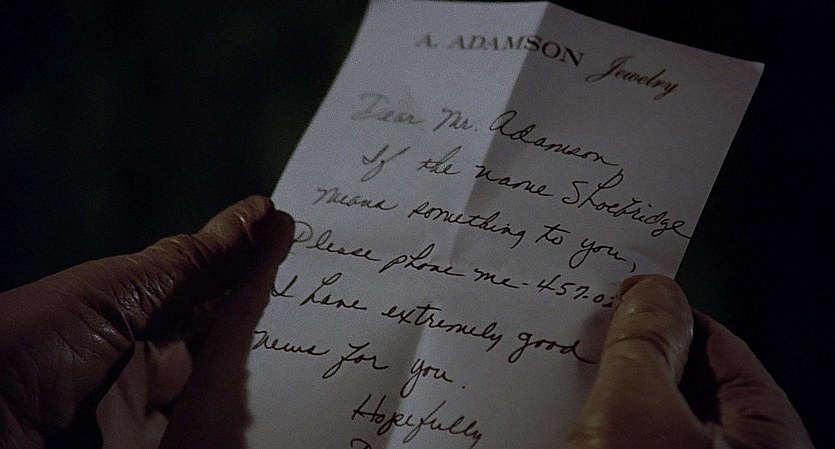 A. ADAMSON Jewelry
Dear Mr. Adamson,
If the name Shoebridge
means something to you,
Please phone me - 457-02
I have extremely good
news for you.
Hopefully